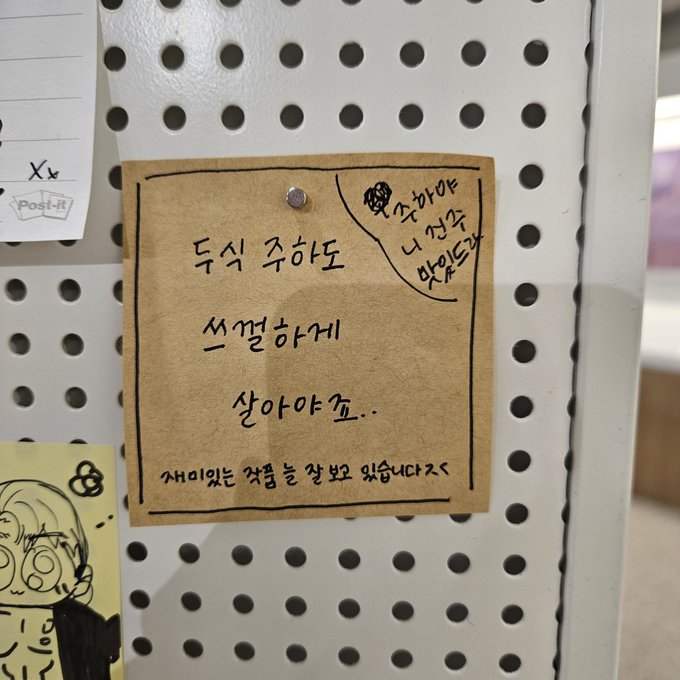 Xx
Post-it
주하야
니 전주
맛있드라
두식 주하도
쓰껄하게
살아야죠..
재미있는 작품 늘 잘 보고 있습니다ㅈㅅ